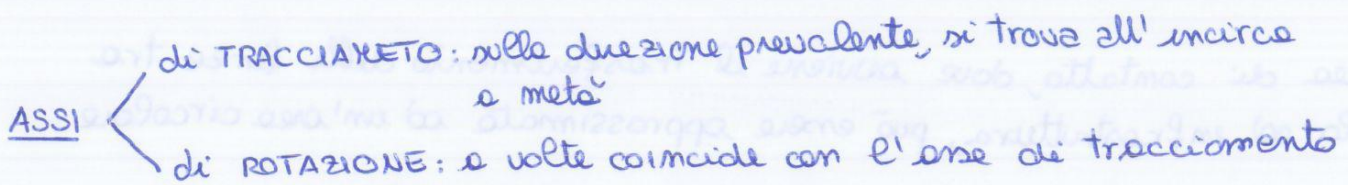 di TRACCIAMETO: sulla direzione prevalente, si trova all'incirca
a metà
ASSI
di ROTAZIONE: a volte coincide con l'asse di tracciamento